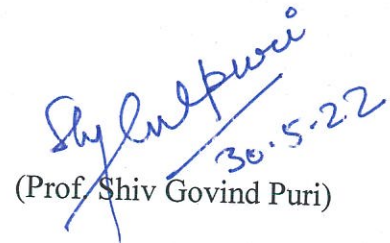 30.5.22
(Prof. Shiv Govind Puri)